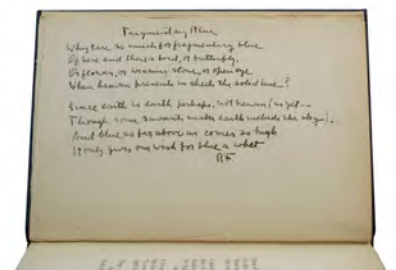 Fragmentary Blue
Why care so much for fragmentary blue
In here and there a bird, or butterfly,
Or flower, or wearing stone, or open eye
When heaven presents in sheets the solid hue?
Since earth is earth perhaps, not heaven (as yet—
Though some savants make earth include the sky—).
And blue so far above us comes so high
It only gives our wish for blue a whet
R.F.